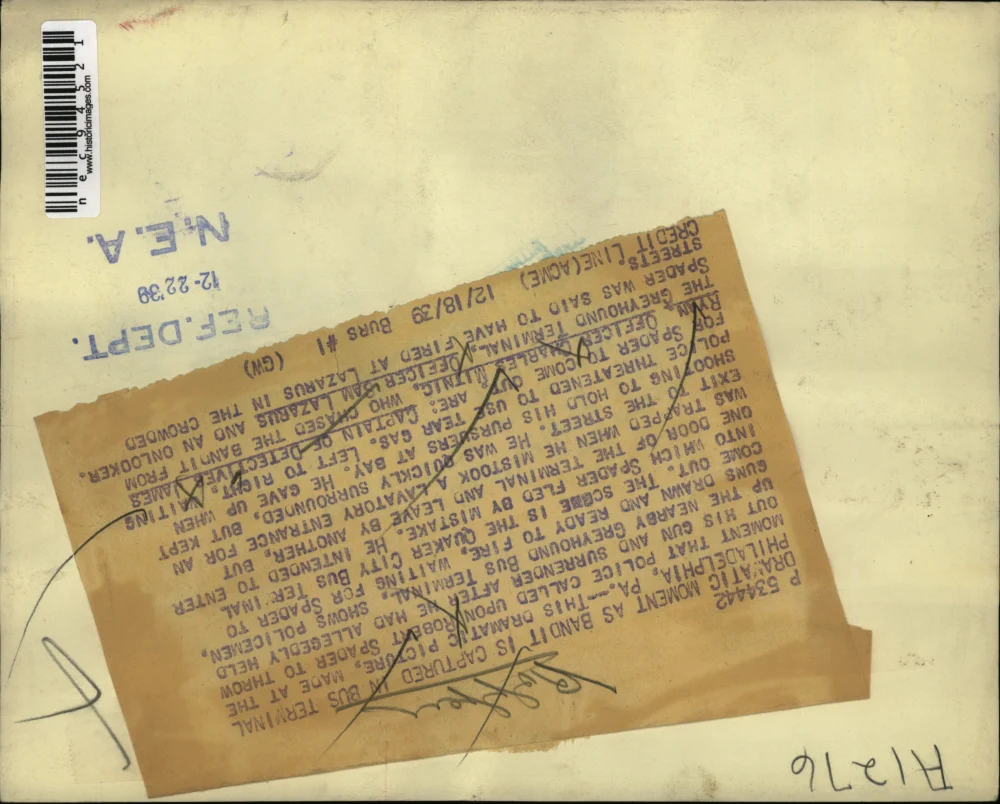 necc94521
www.historicimages.com
N.E.A.
12-22'39
REF. DEPT.
A1276
P 534442
DRAMATIC MOMENT AS BANDIT IS CAPTURED IN BUS TERMINAL
PHILADELPHIA, PA.--THIS DRAMATIC PICTURE, MADE AT THE
MOMENT POLICE CALLED UPON ROBERT SPADER TO THROW
OUT HIS GUN AND SURRENDER AFTER HE HAD ALLEGEDLY HELD
UP THE NEARBY GREYHOUND BUS TERMINAL, SHOWS POLICEMEN,
GUNS DRAWN AND READY TO FIRE, WAITING FOR SPADER TO
COME OUT. THE SCENE IS THE QUAKER CITY BUS TERMINAL
INTO WHICH SPADER FLED BY MISTAKE. HE INTENDED TO ENTER
ONE DOOR OF THE TERMINAL AND LEAVE BY ANOTHER, BUT
WAS TRAPPED WHEN HE MISTOOK A LAVATORY ENTRANCE FOR AN
EXIT TO THE STREET. HE WAS QUICKLY SURROUNDED, BUT KEPT
SHOOTING TO HOLD HIS PURSUERS AT BAY. HE GAVE UP WHEN
POLICE THREATENED TO USE TEAR GAS. LEFT TO RIGHT, WAITING
FOR SPADER TO COME OUT ARE: CAPTAIN OF DETECTIVES JAMES
RYAN, OFFICER CHARLES MITNIC, WHO CHASED THE BANDIT FROM
THE GREYHOUND TERMINAL, OFFICER SAM LAZARUS AND AN ONLOOKER.
SPADER WAS SAID TO HAVE FIRED AT LAZARUS IN THE CROWDED
STREETS.
CREDIT LINE (ACME) 12/18/39 BURS #1 (GW)